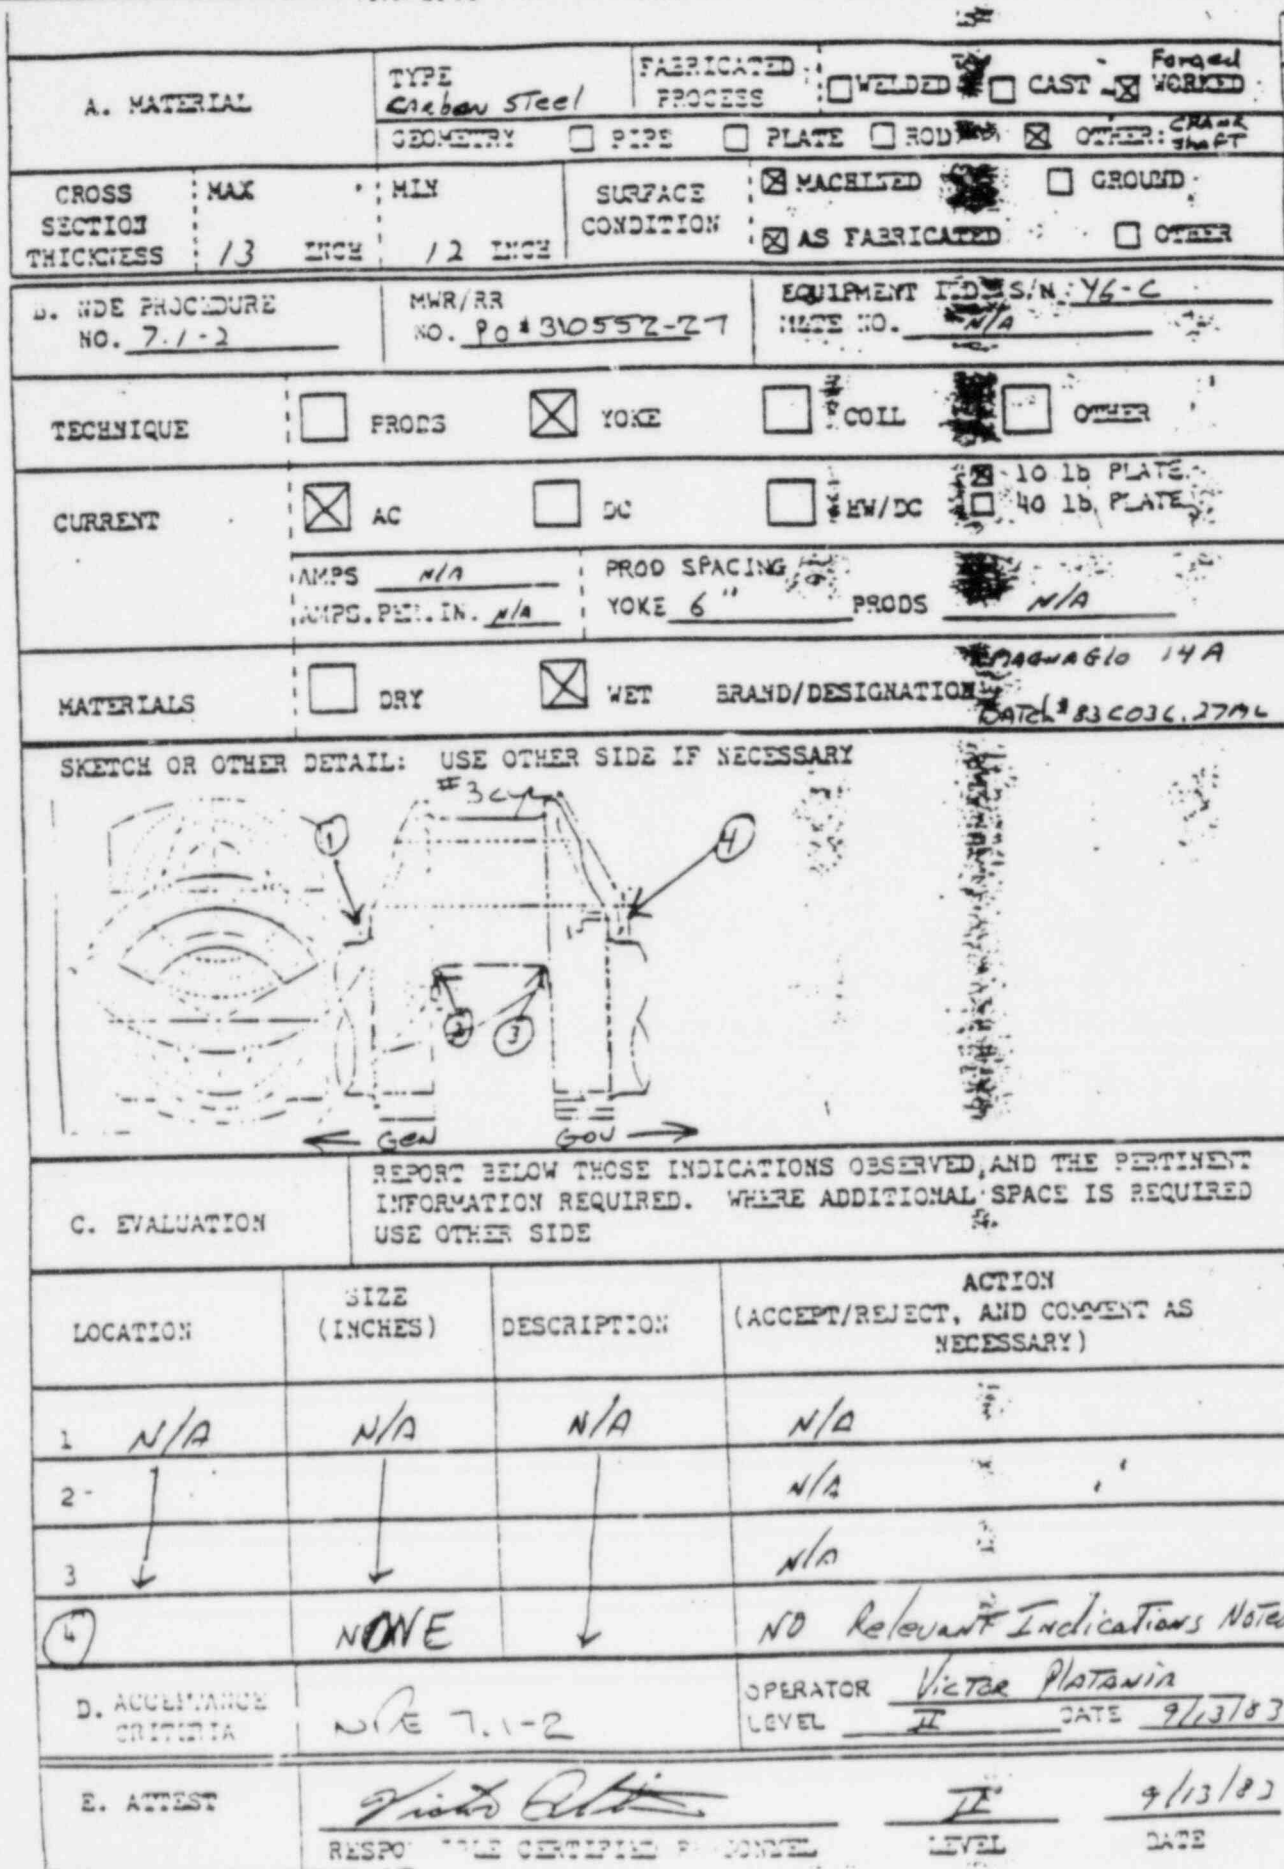 A. MATERIAL
TYPE
Carbon Steel
FABRICATED PROCESS
WELDED
CAST
Forged
WORKED
GEOMETRY
PIPE
PLATE
ROD
OTHER: CRANK ShAFT
CROSS SECTION THICKNESS
MAX
13 INCH
MIN
12 INCH
SURFACE CONDITION
MACHINED
GROUND
AS FABRICATED
OTHER
B. NDE PROCEDURE
NO. 7.1-2
MWR/RR
NO. PO# 310552-27
EQUIPMENT I.D. S/N: Y6-C
MATE NO. N/A
TECHNIQUE
PRODS
YOKE
COIL
OTHER
CURRENT
AC
DC
HW/DC
10 lb PLATE
40 lb PLATE
AMPS N/A
AMPS.PER.IN. N/A
PROD SPACING
YOKE 6" PRODS N/A
MATERIALS
DRY
WET
BRAND/DESIGNATION
MAGNAGlo 14A
BATCh#
SKETCH OR OTHER DETAIL: USE OTHER SIDE IF NECESSARY
#3 cyl
1
4
2
3
GEN
GOV
C. EVALUATION
REPORT BELOW THOSE INDICATIONS OBSERVED, AND THE PERTINENT
INFORMATION REQUIRED. WHERE ADDITIONAL SPACE IS REQUIRED
USE OTHER SIDE
LOCATION
SIZE
(INCHES)
DESCRIPTION
ACTION
(ACCEPT/REJECT, AND COMMENT AS
NECESSARY)
1 N/A N/A N/A N/A
2 N/A
3 N/A
4 NONE NO Relevant Indications Noted
D. ACCEPTANCE CRITERIA
NDE 7.1-2
OPERATOR Victor Platania
LEVEL II DATE 9/13/83
E. ATTEST
II
9/13/83
RESPONSIBLE CERTIFIED PERSONNEL
LEVEL
DATE